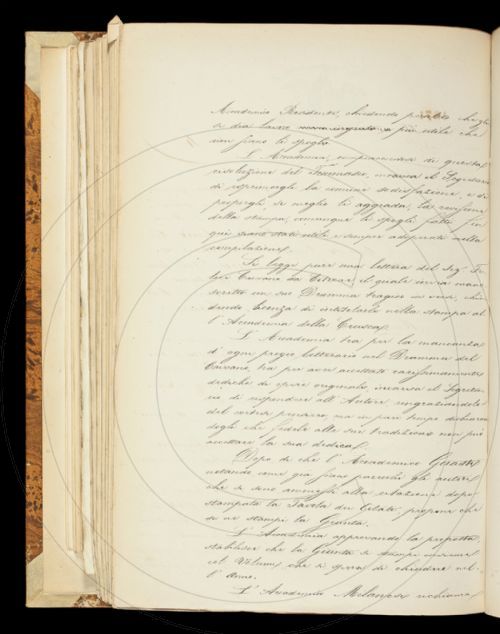 Accademico Residente, chiedendo perciò che gli
si dia lavoro più utile che
non siano li spogli.
L'Accademia, compiacendosi di questa
risoluzione del Tommaseo, incarica il Segretario
di esprimergli la comune sodisfazione, e di
pregargli se meglio li aggrada, la revisione
della stampa, comunque li spogli fatti fin
qui siano stati utili e sempre adoperati nella
compilazione.
Si legge pure una lettera del Sig. Fe-
lice Caivano da il quale invia mano-
scritto un suo Dramma tragico in versi, chie-
dendo licenza di intitolarlo nella stampa al-
l'Accademia della Crusca.
L'Accademia sia per la mancanza
d'ogni pregio letterario nel Dramma del
Caivano, sia per aver accettato rarissimamente
dediche di opere originali, incarica il Segreta-
rio di rispondere all'Autore ringraziandolo
del cortese pensiero, ma in pari tempo dichiaran-
dogli che fedele alle sue tradizioni non può
accettare la sua dedica.
Dopo di che l'Accademico
notando come già siano parecchi gli autori
che si sono ammessi alla citazione dopo
stampata la Tavola dei Citati, propone che
se ne stampi la Giunta.
L'Accademia approvando la proposta,
stabilisce che la Giunta si stampi insieme
col Volume che si spera di chiudere nel-
l'Anno.
L'Accademico Milanesi richiama